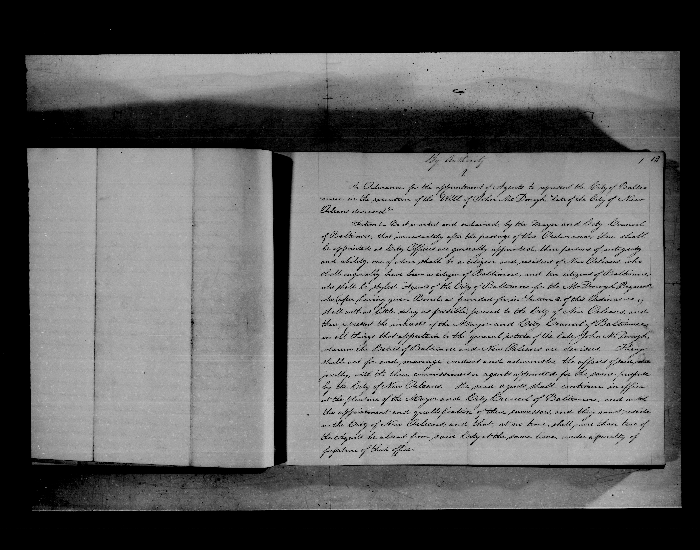 By Authority
1 13
An Ordinance for the appointment of Agents to represent the City of Balti
more in the execution of the Will of John McDonogh, late of the City of New
Orleans deceased.
Section 1. Be it enacted and ordained by the Mayor and City Council
of Baltimore, that immediately after the passage of this Ordinance, there shall
be appointed as City Officers are generally appointed, three persons of integrity
and ability, one of whom shall be a citizen and resident of New Orleans, who
shall originally have been a citizen of Baltimore, and two citizens of Baltimore,
who shall be styled Agents of the City of Baltimore for the McDonogh Bequest
who after having given Bonds as provided for in Section of this Ordinance
shall with as little delay as possible proceed to the City of New Orleans, and
there protect the interests of the Mayor and City Council of Baltimore
in all things that appertain to the general estate of the late John McDonogh,
wherein the Cities of Baltimore and New Orleans are devisees. They
shall act for and manage conduct and administer the affairs of said
jointly with the three commissioners or agents appointed for the same purpose
by the City of New Orleans. The said agents shall continue in office
at the pleasure of the Mayor and City Council of Baltimore, and until
the appointment and qualification of their successors and they must reside
in the City of New Orleans and that at no time, shall more than two of
the Agents be absent from said City at the same time under a penalty of
forfeiture of their office.